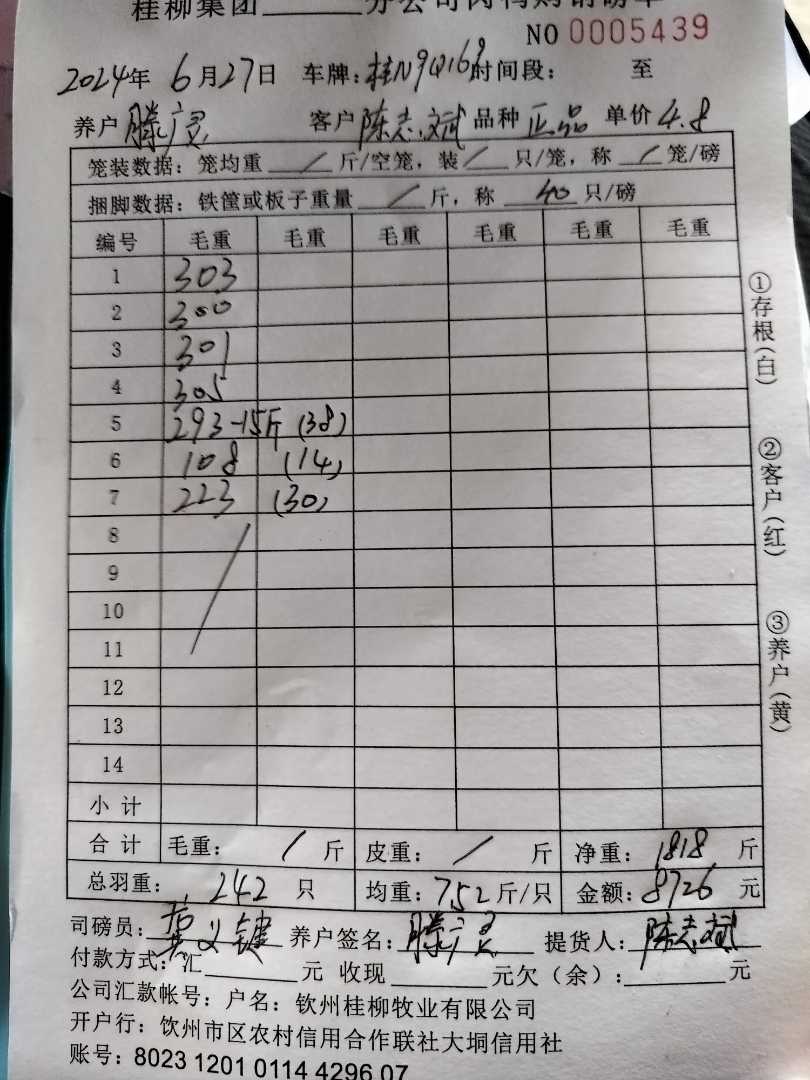 桂柳集团______分公司肉鸭购销磅单
NO 0005439
2024年 6月27日 车牌:桂N9Q169时间段: 至
养户 滕广灵 客户 陈志斌 品种 正品 单价 4.8
笼装数据:笼均重 / 斤/空笼,装 / 只/笼,称 / 笼/磅
捆脚数据:铁筐或板子重量 / 斤,称 40 只/磅
编号 毛重 毛重 毛重 毛重 毛重 毛重
1 303
2 300
3 301
4 305
5 293-15斤 (38)
6 108 (14)
7 223 (30)
8
9
10
11
12
13
14
小 计
合 计 毛重: / 斤 皮重: / 斤 净重: 1818 斤
总羽重: 242 只 均重: 7.52 斤/只 金额: 8726 元
司磅员: 黄义键 养户签名: 滕广灵 提货人: 陈志斌
付款方式:汇______元 收现______元欠(余):______元
公司汇款帐号:户名:钦州桂柳牧业有限公司
开户行:饮州市区农村信用合作联社大垌信用社
账号:8023 1201 0114 4296 07
①存根(白)
②客户(红)
③养户(黄)